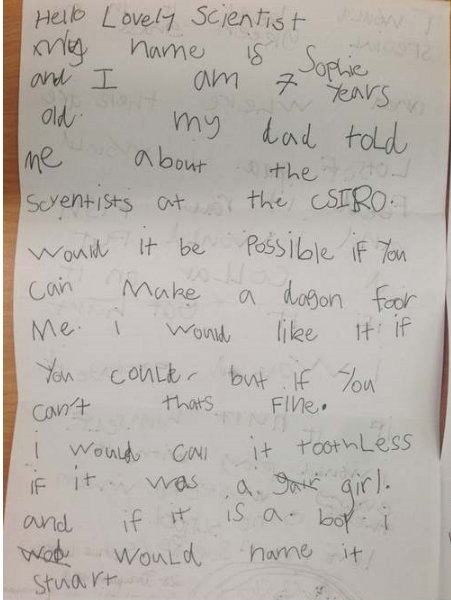 Hello Lovely Scientist
my name is Sophie
and I am 7 Years
old. my dad told
me about the
scyentists at the CSIRO.
Would it be possible if You
can make a dagon foor
Me. i would like it if
You could. but if You
can't thats fine.
i would call it toothless
if it was a girl.
and if it is a boy i
would name it
Stuart